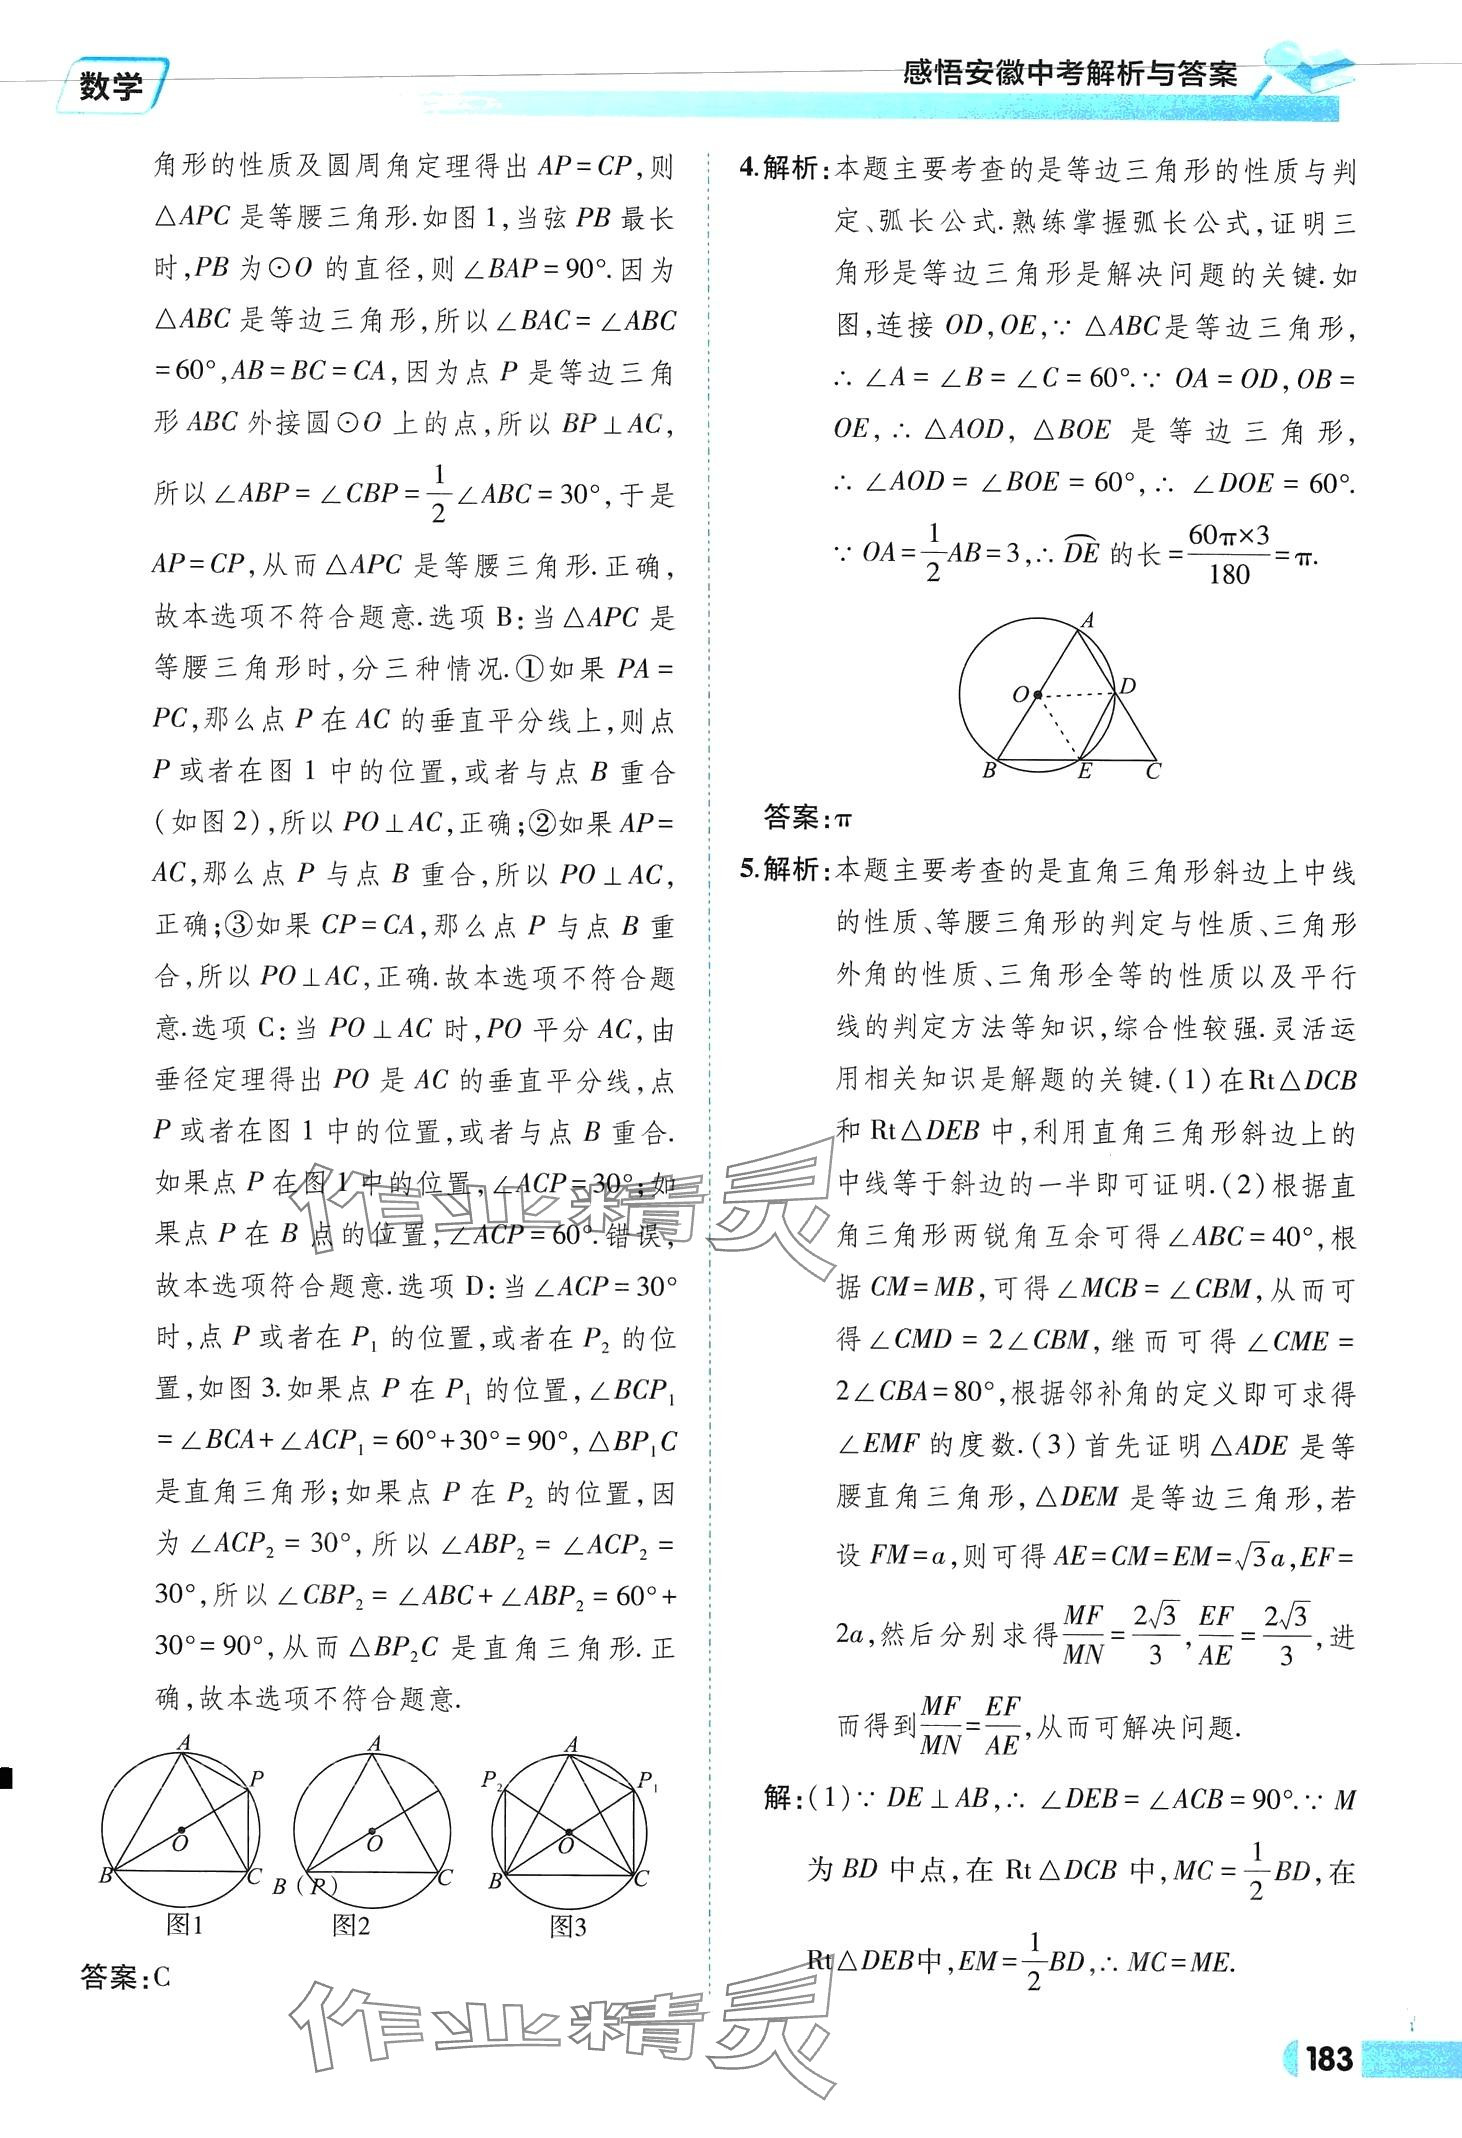 数学
感悟安徽中考解析与答案
角形的性质及圆周角定理得出 AP=CP,则
△APC 是等腰三角形.如图1,当弦 PB 最长
时,PB 为⊙O 的直径,则∠BAP=90°.因为
△ABC 是等边三角形,所以∠BAC=∠ABC
=60°,AB=BC=CA,因为点 P 是等边三角
形 ABC 外接圆⊙O 上的点,所以 BP⊥AC,
所以∠ABP=∠CBP=1/2∠ABC=30°,于是
AP=CP,从而△APC 是等腰三角形.正确,
故本选项不符合题意.选项 B:当△APC 是
等腰三角形时,分三种情况.①如果 PA=
PC,那么点 P 在 AC 的垂直平分线上,则点
P 或者在图1中的位置,或者与点 B 重合
(如图2),所以 PO⊥AC,正确;②如果 AP=
AC,那么点 P 与点 B 重合,所以 PO⊥AC,
正确;③如果 CP=CA,那么点 P 与点 B 重
合,所以 PO⊥AC,正确.故本选项不符合题
意.选项 C:当 PO⊥AC 时,PO 平分 AC,由
垂径定理得出 PO 是 AC 的垂直平分线,点
P 或者在图1中的位置,或者与点 B 重合.
如果点 P 在图1中的位置,∠ACP=30°;如
果点 P 在 B 点的位置,∠ACP=60°.错误,
故本选项符合题意.选项 D:当∠ACP=30°
时,点 P 或者在 P₁ 的位置,或者在 P₂ 的位
置,如图3.如果点 P 在 P₁ 的位置,∠BCP₁
=∠BCA+∠ACP₁=60°+30°=90°,△BP₁C
是直角三角形;如果点 P 在 P₂ 的位置,因
为∠ACP₂=30°,所以∠ABP₂=∠ACP₂=
30°,所以∠CBP₂=∠ABC+∠ABP₂=60°+
30°=90°,从而△BP₂C 是直角三角形.正
确,故本选项不符合题意.
A P O B C 图1
A O B(P) C 图2
A P₂ P₁ O B C 图3
答案:C
4.解析:本题主要考查的是等边三角形的性质与判
定、弧长公式.熟练掌握弧长公式,证明三
角形是等边三角形是解决问题的关键.如
图,连接 OD,OE,∵△ABC是等边三角形,
∴∠A=∠B=∠C=60°.∵OA=OD,OB=
OE,∴△AOD,△BOE 是等边三角形,
∴∠AOD=∠BOE=60°,∴∠DOE=60°.
∵OA=1/2AB=3,∴⌒DE 的长=60π×3/180=π.
A O D B E C
答案:π
5.解析:本题主要考查的是直角三角形斜边上中线
的性质、等腰三角形的判定与性质、三角形
外角的性质、三角形全等的性质以及平行
线的判定方法等知识,综合性较强.灵活运
用相关知识是解题的关键.(1)在Rt△DCB
和 Rt△DEB 中,利用直角三角形斜边上的
中线等于斜边的一半即可证明.(2)根据直
角三角形两锐角互余可得∠ABC=40°,根
据 CM=MB,可得∠MCB=∠CBM,从而可
得∠CMD=2∠CBM,继而可得∠CME=
2∠CBA=80°,根据邻补角的定义即可求得
∠EMF 的度数.(3)首先证明△ADE 是等
腰直角三角形,△DEM 是等边三角形,若
设 FM=a,则可得 AE=CM=EM=√3a,EF=
2a,然后分别求得MF/MN=2√3/3,EF/AE=2√3/3,进
而得到MF/MN=EF/AE,从而可解决问题.
解:(1)∵DE⊥AB,∴∠DEB=∠ACB=90°.∵M
为 BD 中点,在 Rt△DCB 中,MC=1/2BD,在
Rt△DEB中,EM=1/2BD,∴MC=ME.
作业精灵
作业精灵
183